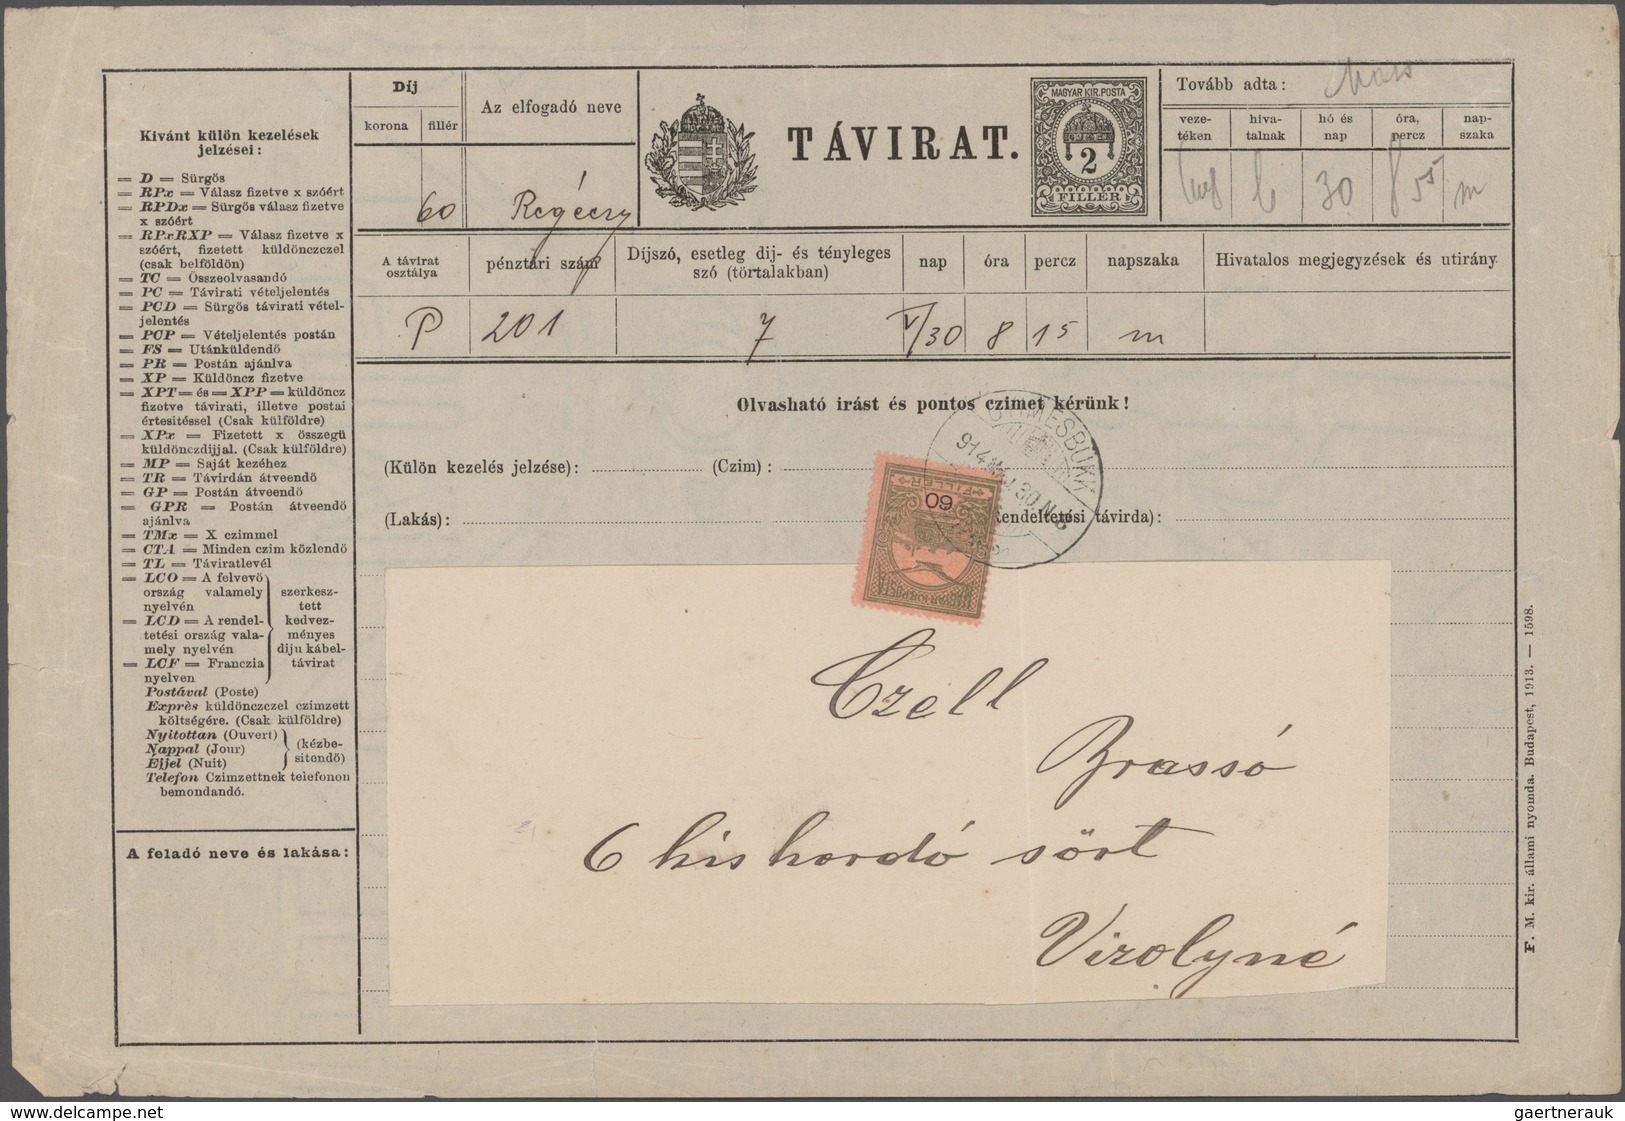 Kivánt külön kezelések
jelzései:
= D = Sürgős
= RPx = Válasz fizetve x szóért
= RPDx = Sürgős válasz fizetve
x szóért
= RPxRXP = Válasz fizetve x
szóért, fizetett küldönczczel
(csak belföldön)
= TC = Összeolvasandó
= PC = Távirati vételjelentés
= PCD = Sürgös távirati vétel-
jelentés
= PCP = Vételjelentés postán
= FS = Utánküldendő
= PR = Postán ajánlva
= XP = Küldöncz fizetve
= XPT = és = XPP = küldöncz
fizetve távirati, illetve postai
értesitéssel (Csak külföldre)
= XPx = Fizetett x összegü
küldönczdijjal. (Csak külföldre)
= MP = Saját kezéhez
= TR = Távirdán átveendő
= GP = Postán átveendő
= GPR = Postán átveendő
ajánlva
= TMx = X czimmel
= CTA = Minden czim közlendő
= TL = Táviratlevél
= LCO = A felvevő
ország valamely
nyelvén
= LCD = A rendel-
tetési ország vala-
mely nyelvén
= LCF = Franczia
nyelven
szerkesz-
tett
kedvez-
ményes
diju kábel-
távirat
Postával (Poste)
Exprès küldönczczel czimzett
költségére. (Csak külföldre)
Nyitottan (Ouvert)
Nappal (Jour)
Éjjel (Nuit)
(kézbe-
sitendő)
Telefon Czimzettnek telefonon
bemondandó.
A feladó neve és lakása:
Díj
korona fillér
60
Az elfogadó neve
Regéczy
TÁVIRAT.
MAGYAR KIR. POSTA
2
FILLÉR
Tovább adta:
veze-
téken
hiva-
talnak
hó és
nap
óra,
percz
nap-
szaka
30 8 55 m
A távirat
osztálya
pénztári szám
Díjszó, esetleg dij- és tényleges
szó (törtalakban)
nap óra percz napszaka
Hivatalos megjegyzések és utirány.
P 201 7 V/30 8 15 m
Olvasható irást és pontos czimet kérünk!
(Külön kezelés jelzése): (Czim):
(Lakás): Rendeltetési távirda):
914 MÁJ. 30. N. 8
60
FILLÉR
MAGYAR KIR. POSTA
Czell
Brassó
6 kis hordó sört
Virolyné
F. M. kir. állami nyomda. Budapest, 1913. — 1598.
delcampe.net
gaertnerauk